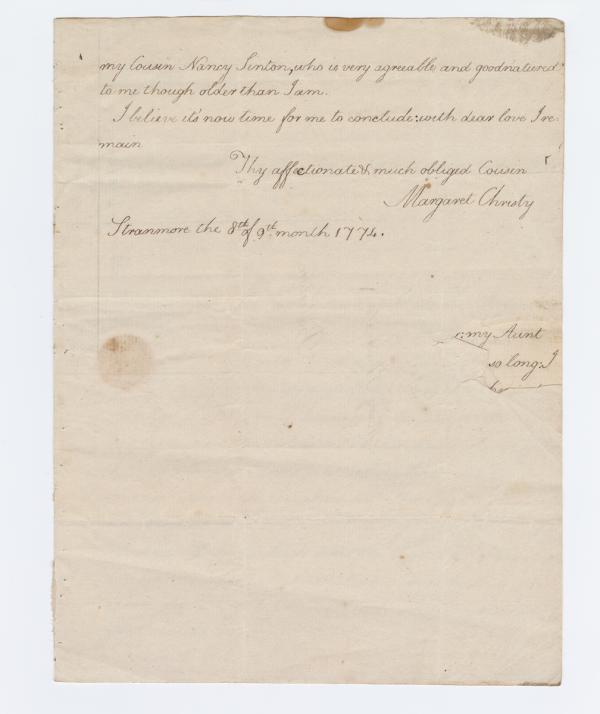 my Cousin Nancy Sinton, who is very agreeable and goodnatured
to me though older than I am.
I believe it's now time for me to conclude: with dear love I re-
main
Thy affectionate & much obliged Cousin
Margaret Christy
Stranmore the 8th of 9th month 1774.
r: my Aunt
so long: I